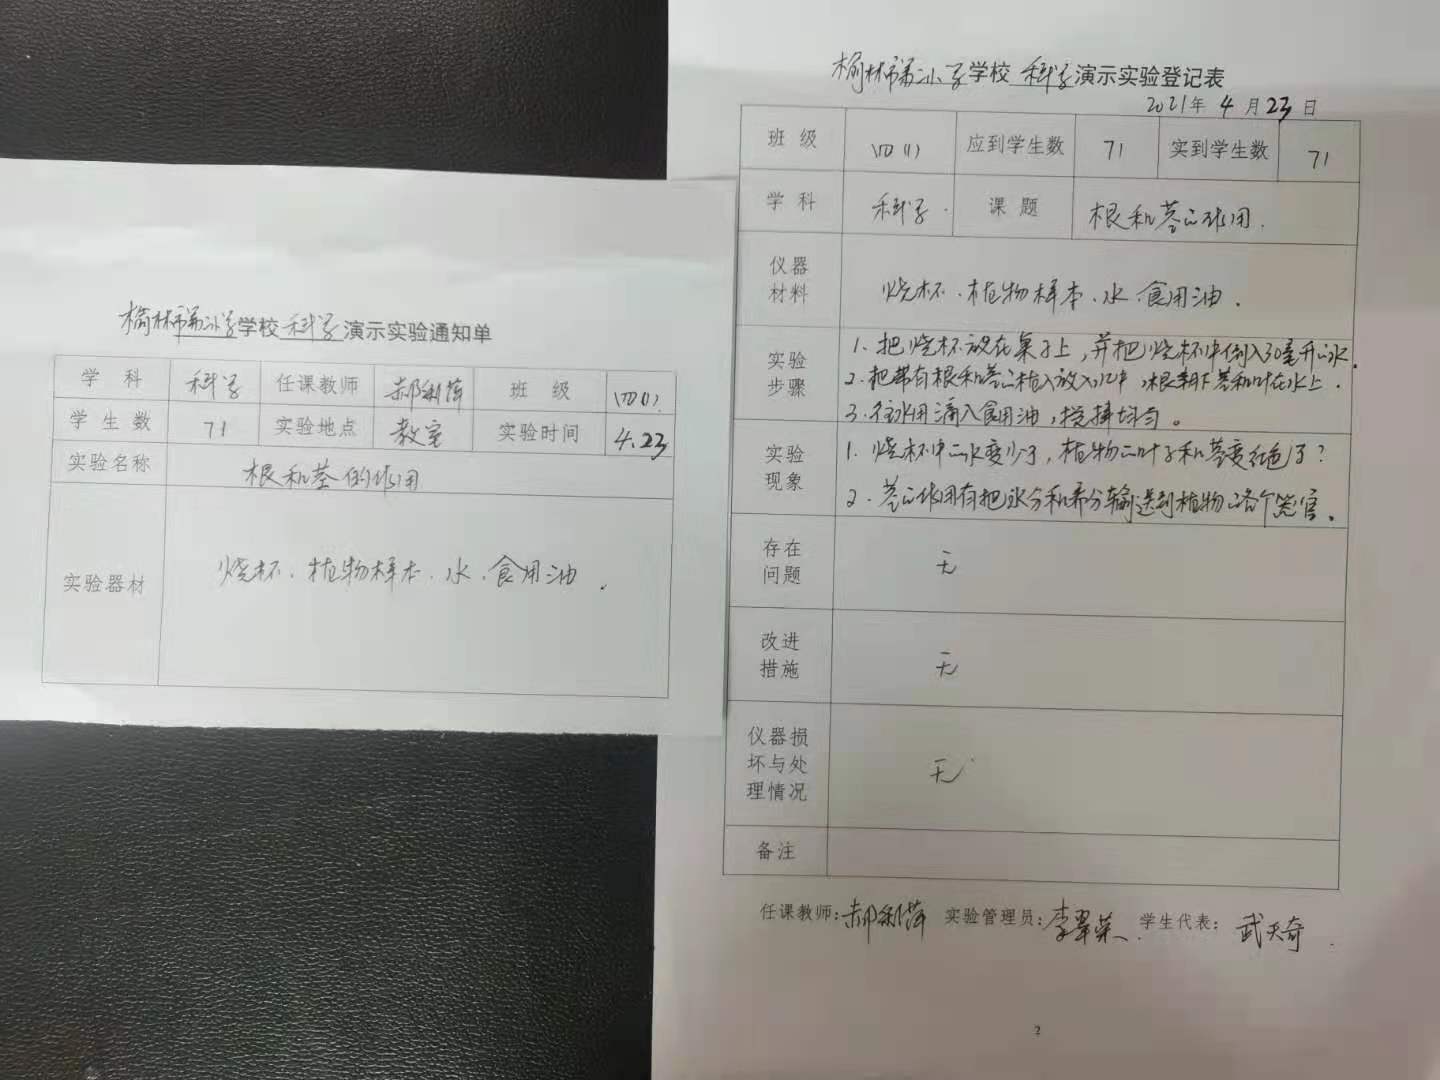 榆林市第小学学校 科学 演示实验通知单
学科 科学 任课教师 郝利萍 班级 四(1)
学生数 71 实验地点 教室 实验时间 4.23
实验名称 根和茎的作用
实验器材 烧杯、植物样本、水、食用油.
榆林市第小学学校 科学 演示实验登记表
2021年 4 月 23 日
班级 四(1) 应到学生数 71 实到学生数 71
学科 科学. 课题 根和茎的作用.
仪器
材料 烧杯、植物样本、水、食用油.
实验
步骤
1. 把烧杯放在桌子上,并把烧杯中倒入30毫升的水.
2. 把带有根和茎的植入放入水中,根朝下茎和叶在水上.
3. 往水用滴入食用油,搅拌均匀。
实验
现象
1. 烧杯中的水变少了,植物的叶子和茎变红色了?
2. 茎的作用有把水分和养分输送到植物的各个器官。
存在
问题 无
改进
措施 无
仪器损
坏与处
理情况 无
备注
任课教师:郝利萍 实验管理员:李翠荣 学生代表:武天奇.
2